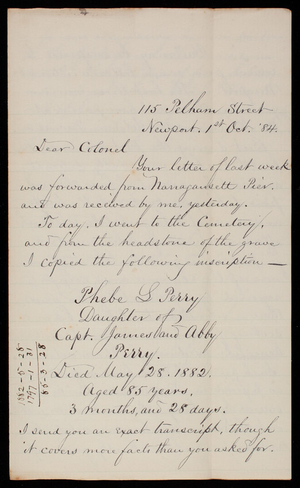 115 Pelham Street
Newport. 1st Oct. '84.
Dear Colonel
Your letter of last week
was forwarded from Narragansett Pier.
and was received by me, yesterday.
To day, I went to the Cemetery,
and from the headstone of the grave
I copied the following inscription —
Phebe S Perry
Daughter of
Capt. James and Abby
Perry.
Died May 28. 1882.
Aged 85 years,
3 months, and 28 days.
I send you an exact transcript, though
it covers more facts than you asked for.
1882-5-28
1797-1-31
85-3-28